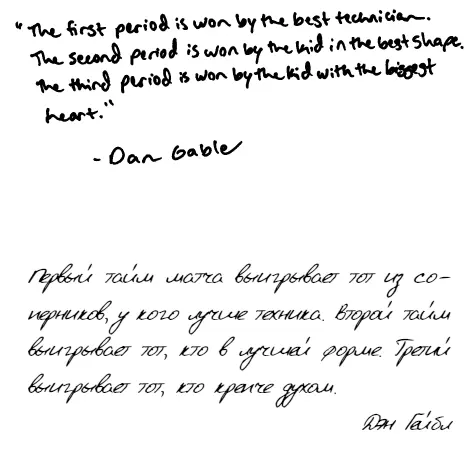 "The first period is won by the best technician.
The second period is won by the kid in the best shape.
The third period is won by the kid with the biggest
heart."
- Dan Gable
Первый тайм матча выигрывает тот из со-
перников, у кого лучше техника. Второй тайм
выигрывает тот, кто в лучшей форме. Третий
выигрывает тот, кто крепче духом.
Дэн Гейбл